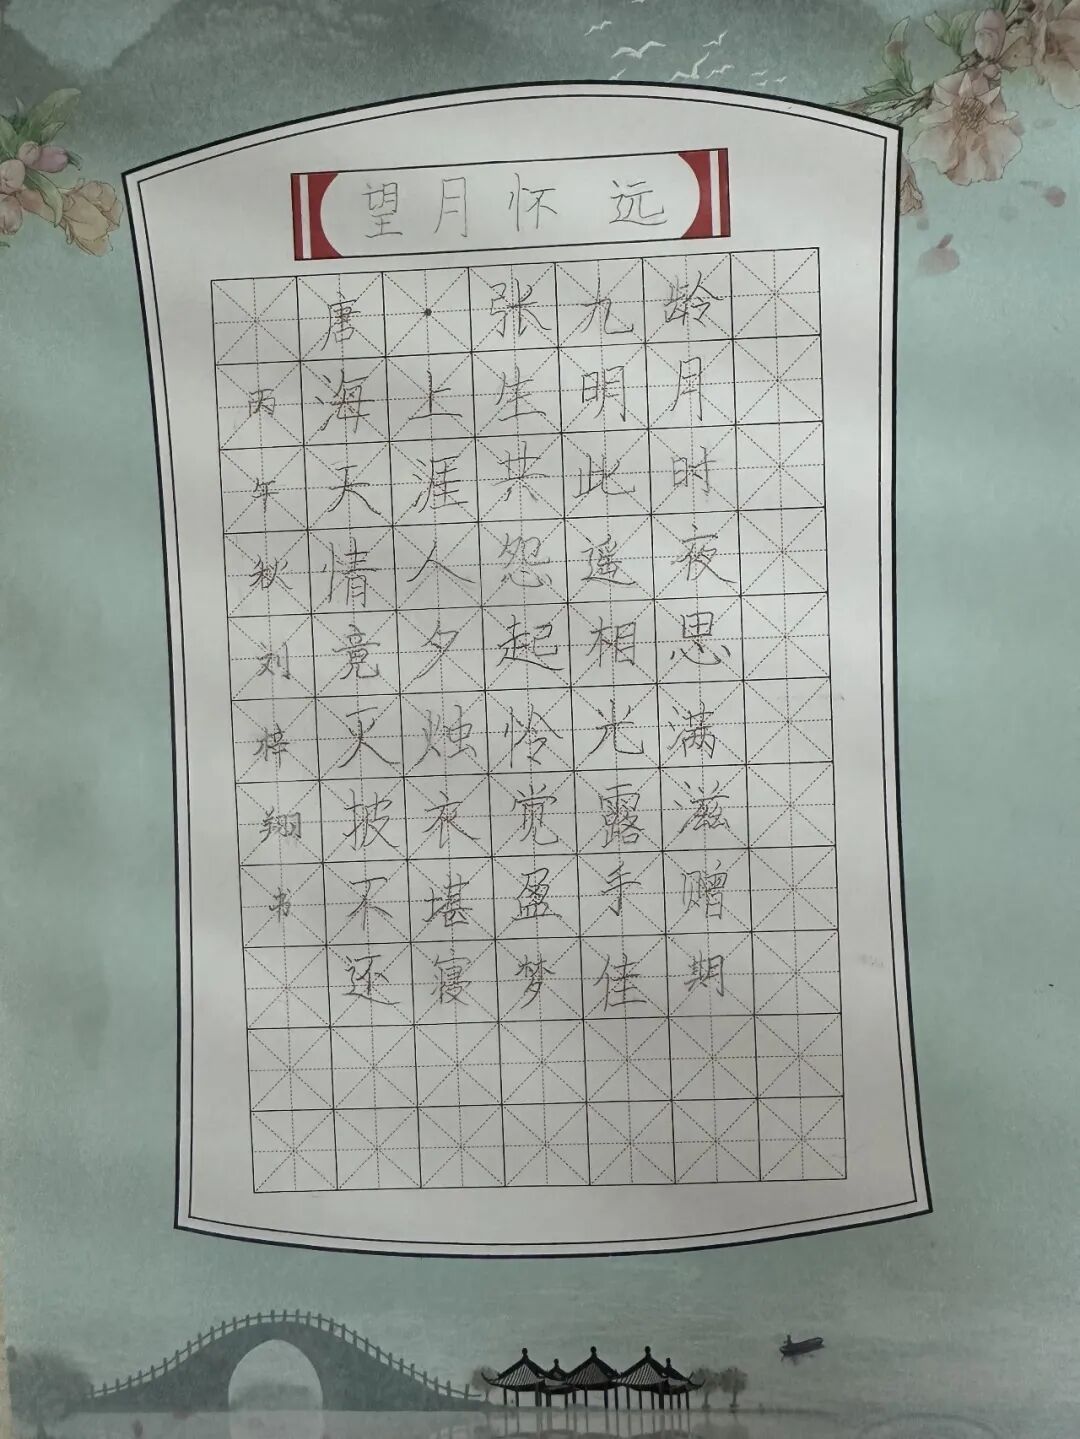 望月怀远
唐·张九龄
海上生明月
天涯共此时
情人怨遥夜
竟夕起相思
灭烛怜光满
披衣觉露滋
不堪盈手赠
还寝梦佳期
丙午秋刘梓翔书